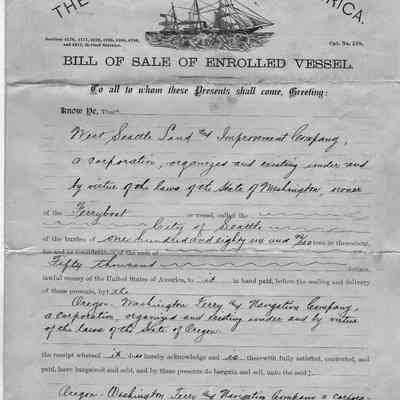 THE
RICA.
Sections 4170, 4171, 4192, 4193, 4194, 4196,
and 4312, Revised Statutes.
Cat. No. 519.
BILL OF SALE OF ENROLLED VESSEL.
To all to whom these Presents shall come, Greeting:
Know Ye, That
West Seattle Land & Improvement Company,
a corporation, organized and existing under and
by virtue of the laws of the State of Washington, owner
of the Ferryboat or vessel, called the
City of Seattle
of the burden of one hundred and eighty six and tons or thereabouts,
for and in consideration of the sum of
Fifty thousand dollars,
lawful money of the United States of America, to it in hand paid, before the sealing and delivery
of these presents, by the
Oregon-Washington Ferry & Navigation Company,
a corporation, organized and existing under and by virtue
of the laws of the State of Oregon
the receipt whereof it does hereby acknowledge and is therewith fully satisfied, contented, and
paid, have bargained and sold, and by these presents do bargain and sell, unto the said
Oregon-Washington Ferry & Navigation Company a corpora-